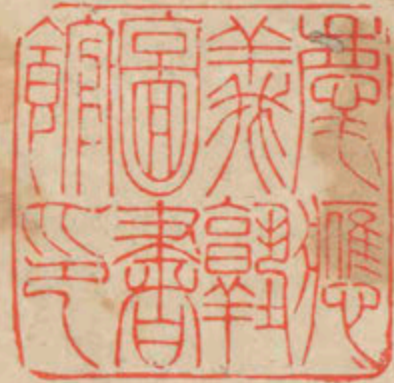 慶應
義塾
圖書
館印